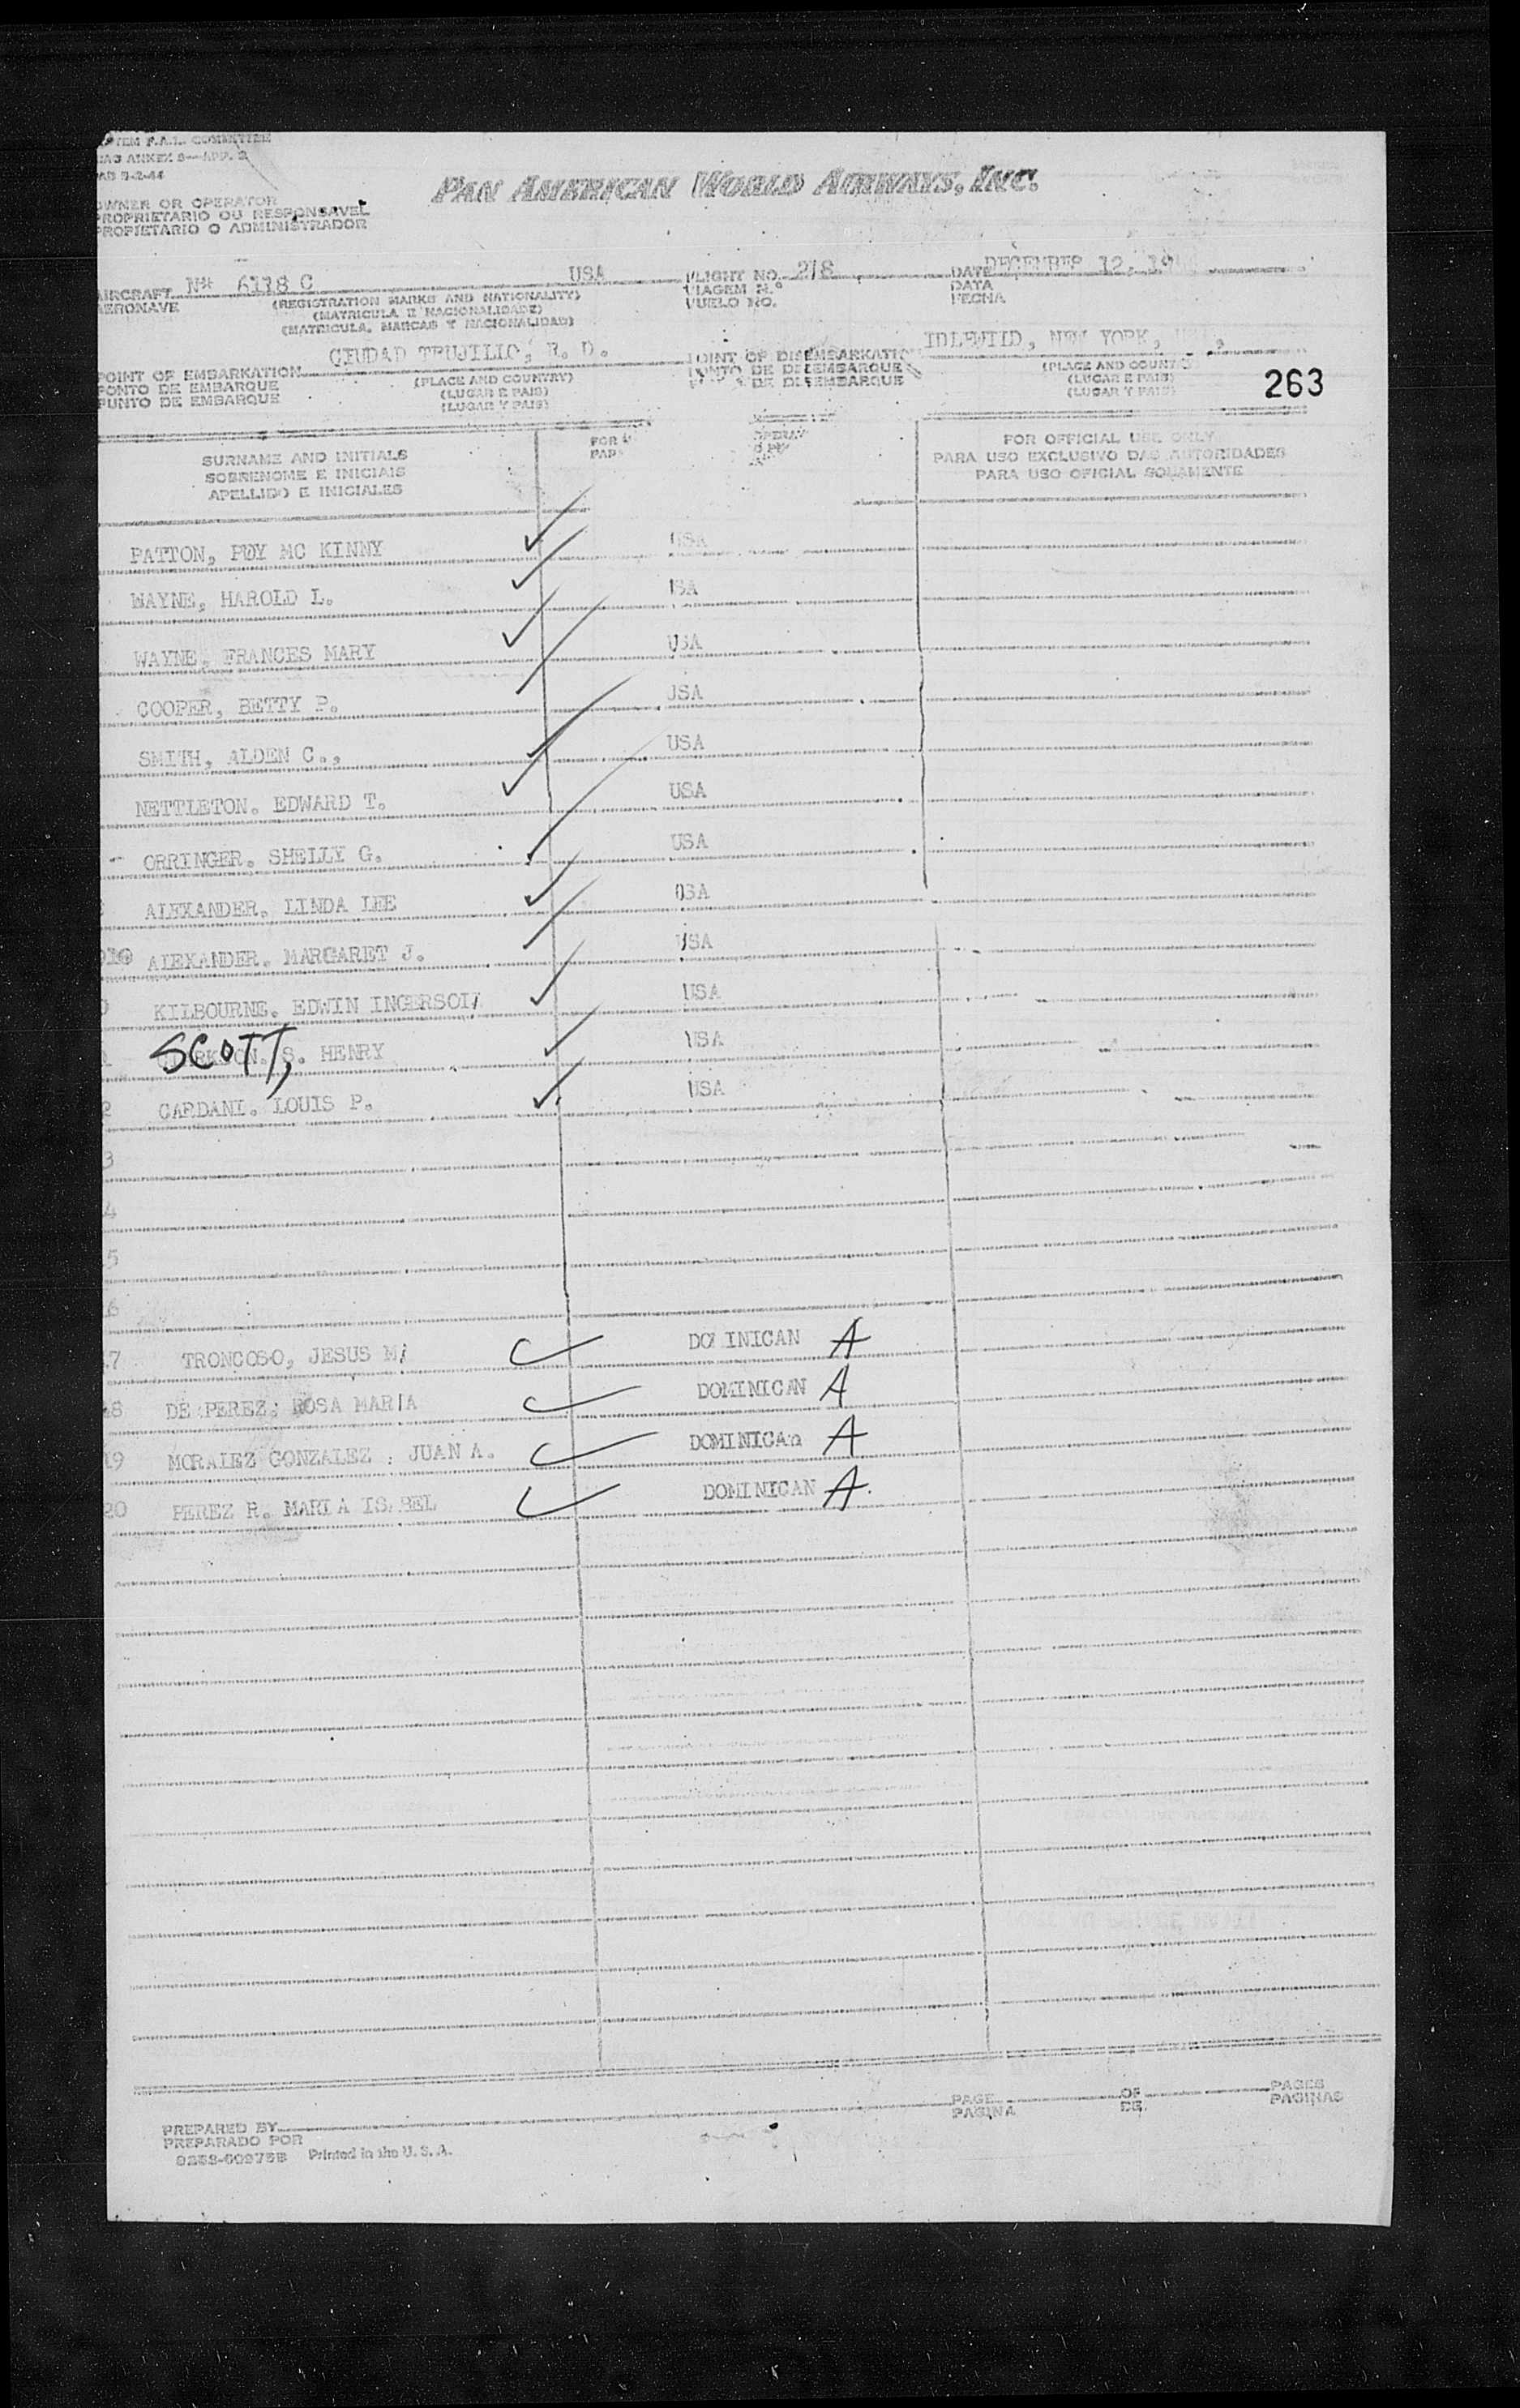 F.A.L. COMMITTEE
ANNEX 8—APP. 2
PAN AMERICAN WORLD AIRWAYS, INC.
OWNER OR OPERATOR
PROPRIETARIO OU RESPONSAVEL
PROPIETARIO O ADMINISTRADOR
AIRCRAFT N** 6118 C USA FLIGHT NO. 218 DATE DECEMBER 12, 19
AERONAVE (REGISTRATION MARKS AND NATIONALITY) VIAGEM N.º DATA
(MATRICULA E NACIONALIDADE) VUELO NO. FECHA
(MATRICULA, MARCAS Y NACIONALIDAD)
POINT OF EMBARKATION CIUDAD TRUJILLO, R. D. POINT OF DISEMBARKATION IDLEWILD, NEW YORK,
PONTO DE EMBARQUE (PLACE AND COUNTRY) PONTO DE DESEMBARQUE (PLACE AND COUNTRY)
PUNTO DE EMBARQUE (LUGAR E PAIS) DE DESEMBARQUE (LUGAR E PAIS)
(LUGAR Y PAIS) (LUGAR Y PAIS)
263
SURNAME AND INITIALS FOR FOR OFFICIAL USE ONLY
SOBRENOME E INICIAIS PARA USO EXCLUSIVO DAS AUTORIDADES
APELLIDO E INICIALES PARA USO OFICIAL SOLAMENTE
PATTON, ROY MC KINNY USA
WAYNE, HAROLD L. USA
WAYNE, FRANCES MARY USA
COOPER, BETTY P. USA
SMITH, ALDEN C., USA
NETTLETON. EDWARD T. USA
ORRINGER. SHELLY G. USA
ALEXANDER. LINDA LEE USA
ALEXANDER. MARGARET J. USA
KILBOURNE. EDWIN INGERSOLL USA
SCOTT, S. HENRY USA
CARDANI. LOUIS P. USA
3
4
5
6
17 TRONCOSO, JESUS M. DOMINICAN A
18 DE PEREZ, ROSA MARIA DOMINICAN A
19 MORALEZ GONZALEZ, JUAN A. DOMINICAN A
20 PEREZ R. MARIA ISABEL DOMINICAN A.
PAGE OF PAGES
PAGINA DE PAGINAS
PREPARED BY
PREPARADO POR
9253-60975B Printed in the U. S. A.